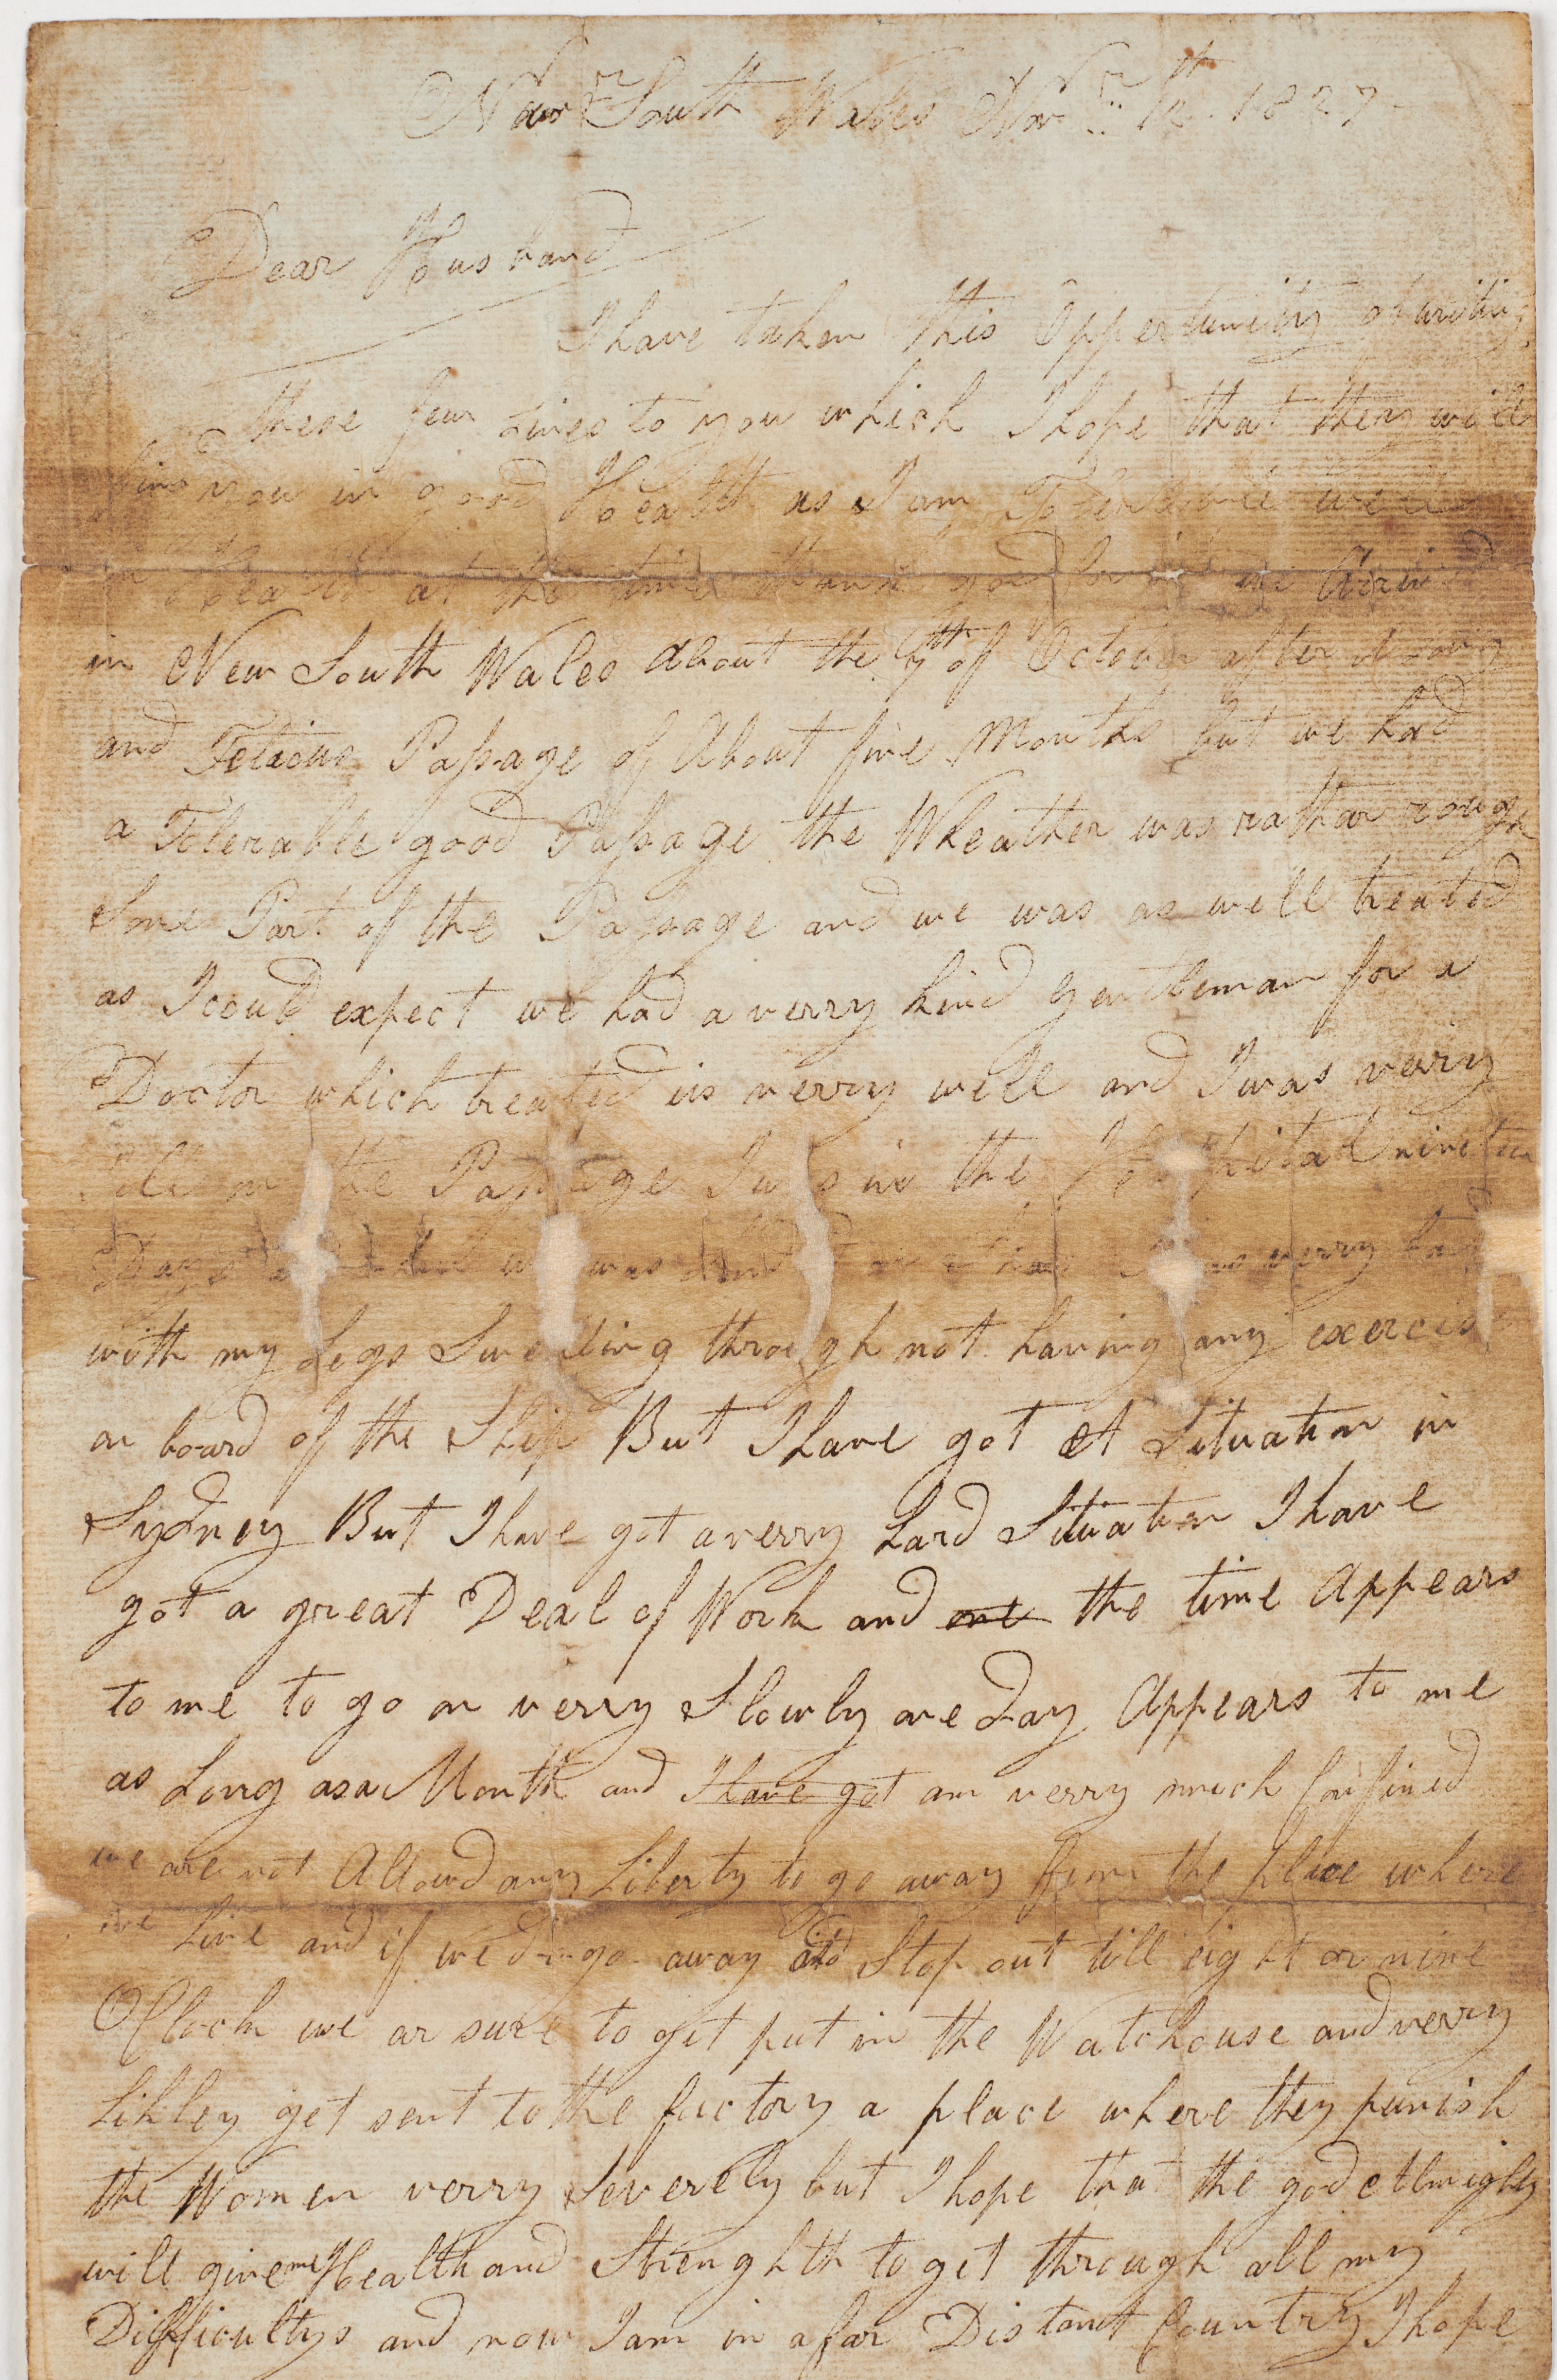 New South Wales Nov.r 12th 1827
Dear Husband
I have taken this Oppertunity of writing
these few Lines to you which I hope that they will
find you in good Health as I am Tolerable well
in Health at the time thank god for it we Arrived
in New South Wales About the 7th of October after a Long
and Tetious Passage of About five Months but we had
a Tolerable good Passage the Wheather was rather rough
Some Part of the Passage and we was as well treated
as I could expect we had a verry kind gentleman for a
Doctor which treated us verry well and I was verry
ill on the Passage I was in the Hospital nineteen
Days and when we was verry bad
with my Legs Swelling through not having any exercise
on board of the Ship But I have got A Situation in
Sydney But I have got a verry hard Situation I have
got a great Deal of Work and one the time Appears
to me to go on verry Slowly one Day Appears to me
as Long as a Month and I have got am verry much Confined
we are not Allowd any Liberty to go away from the place where
we Live and if we do go away and Stop out till eight or nine
OClock we ar sure to get put in the Watchouse and verry
Likley get sent to the factory a place where they punish
the Women verry Severely but I hope that the god Allmighty
will give me Health and Strenghth to get through all my
Difficultys and now I am in a far Distant Country I hope